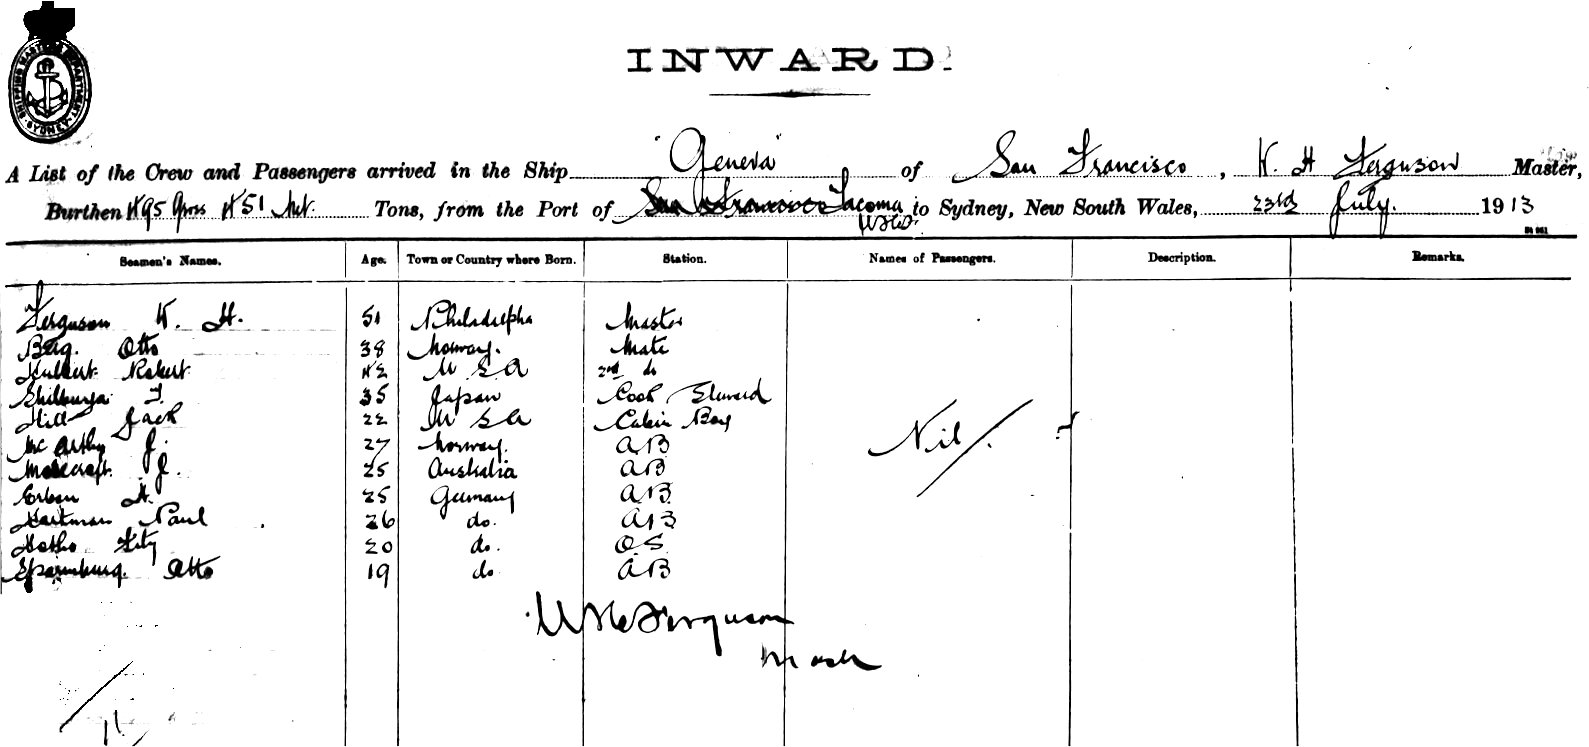 SHIPPING MASTERS DEPARTMENT
SYDNEY
INWARD.
A List of the Crew and Passengers arrived in the Ship "Geneva" of San Francisco, W. H Ferguson Master,
Burthen 495 Gross 451 Net. Tons, from the Port of San Francisco Tacoma to Sydney, New South Wales, 23rd July. 1913
Seamen's Names. Age. Town or Country where Born. Station. Names of Passengers. Description. Remarks.
Ferguson W. H. 51 Philadelpha Master
Berg. Otto 38 Norway. Mate
Robert 42 U S A 2nd do
T. 35 Japan Cook Steward
Hill Jack 22 U S A Cabin Boy
Mc Arthy J. 27 Norway. AB
J. 25 Australia AB
H. 25 Germany AB
Nil
Hartman Paul 26 do. AB
20 do. OS
Otto 19 do AB
W H Ferguson
Mash
11